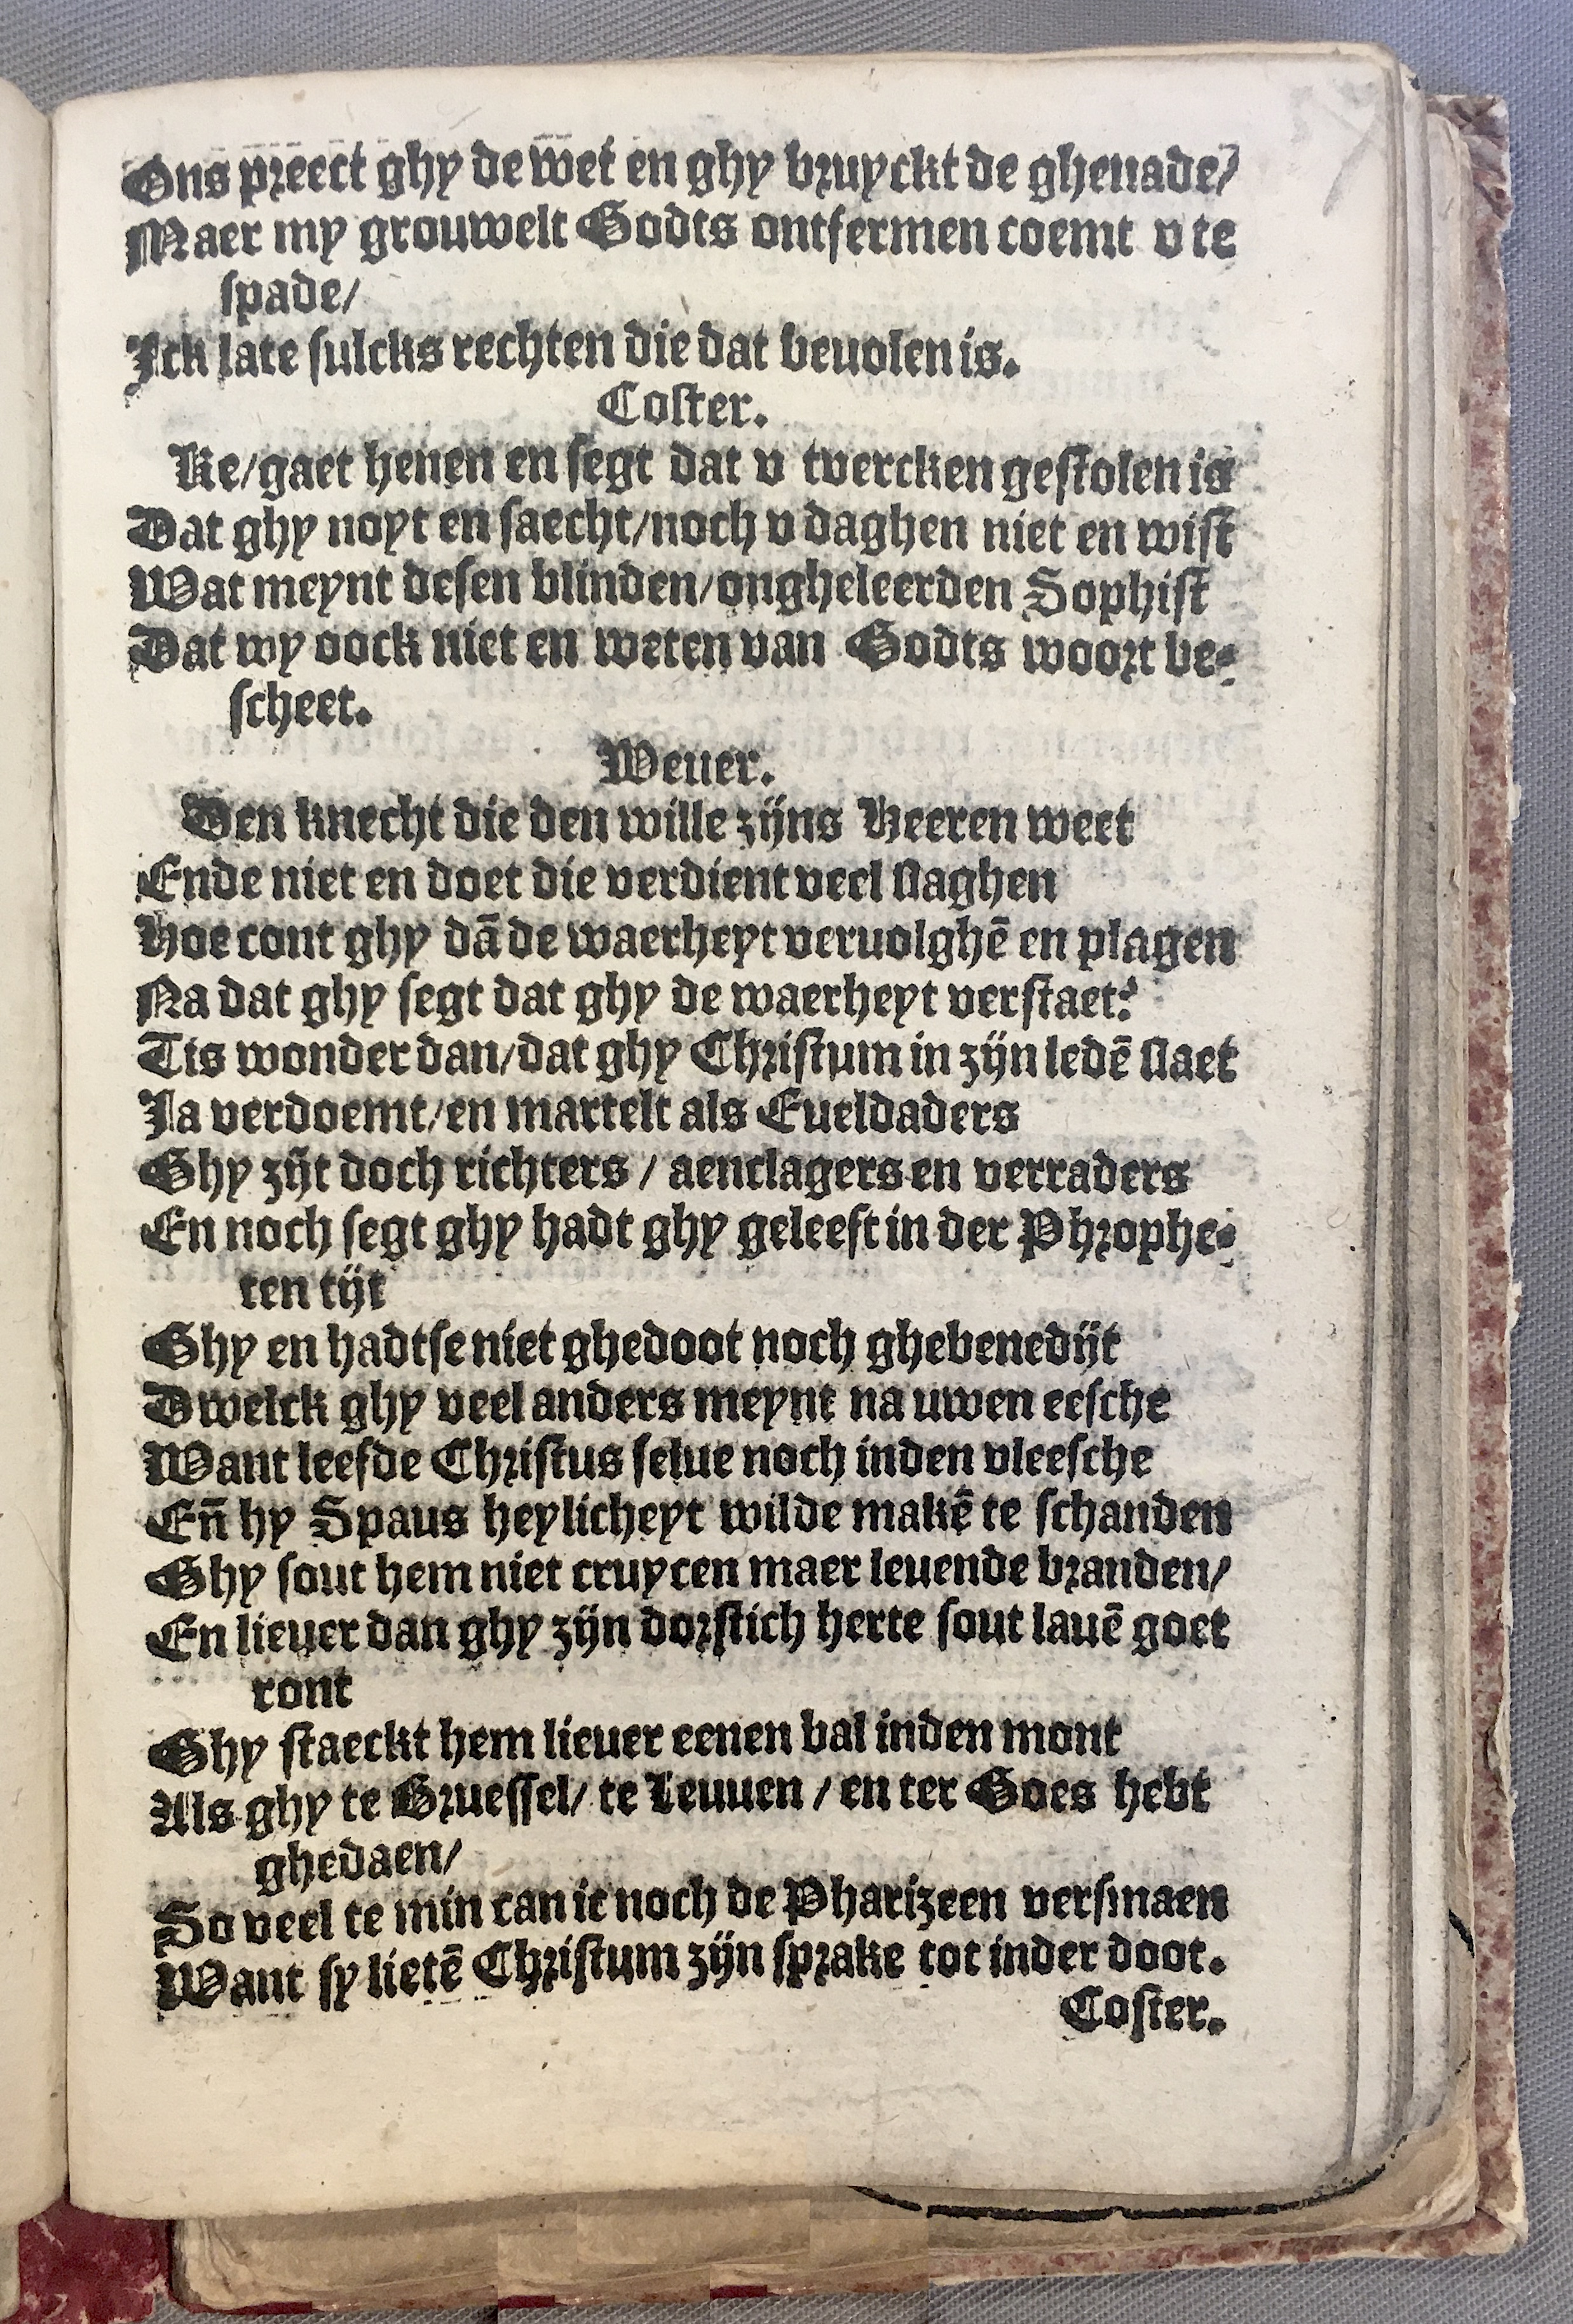 Ons preect ghy de wet en ghy bruyckt de ghenade/
Maer my grouwelt Godts ontfermen coemt v te
spade/
Ick late sulcks rechten die dat beuolen is.
Coster.
Ke/gaet henen en segt dat v tvercken gestolen is
Dat ghy noyt en saecht/noch v daghen niet en wist
Wat meynt desen blinden/ongheleerden Sophist
Dat wy oock niet en weten van Godts woort be-
scheet.
Weuer.
Den knecht die den wille zijns Heeren weet
Ende niet en doet die verdient veel slaghen
Hoe cont ghy dā de waerheyt veruolghē en plagen
Na dat ghy segt dat ghy de waerheyt verstaet?
Tis wonder dan/dat ghy Christum in zijn ledē slaet
Ja verdoemt/en martelt als Eueldaders
Ghy zijt doch richters / aenclagers en verraders
En noch segt ghy hadt ghy geleeft in der Phrophe-
ten tijt
Ghy en hadtse niet ghedoot noch ghebenedijt
Dwelck ghy veel anders meynt na uwen eesche
Want leefde Christus selue noch inden vleesche
Eñ hy Spaus heylicheyt wilde makē te schanden
Ghy sout hem niet cruycen maer leuende branden/
En lieuer dan ghy zijn dorstich herte sout lauē goet
ront
Ghy staeckt hem lieuer eenen bal inden mont
Als ghy te Bruessel/ te Leuuen / en ter Goes hebt
ghedaen/
So veel te min can ic noch de Pharizeen versmaen
Want sy lietē Christum zijn sprake tot inder doot.
Coster.